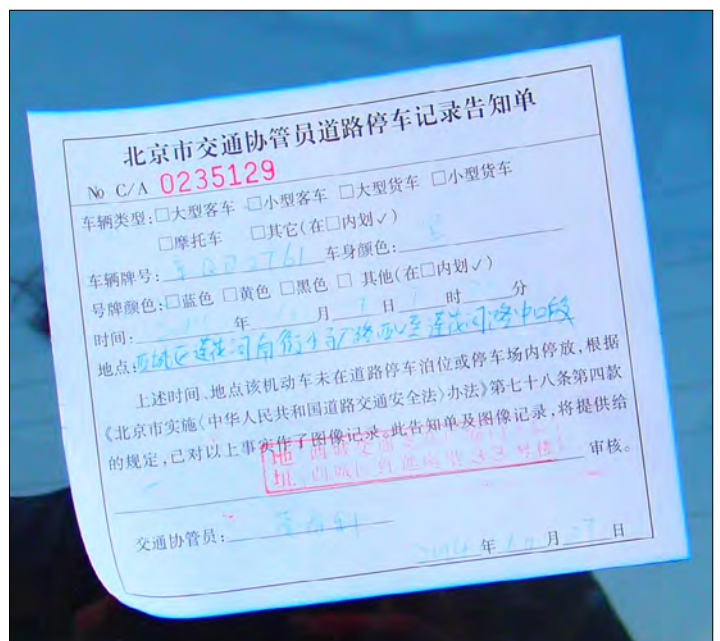 北京市交通协管员道路停车记录告知单
No C/A 0235129
车辆类型:□大型客车 □小型客车 □大型货车 □小型货车
□摩托车 □其它(在□内划✓)
车辆牌号: 车身颜色:
号牌颜色:□蓝色 □黄色 □黑色 □ 其他(在□内划✓)
时间: 年 月 日 时 分
地点:西城区莲花河
上述时间、地点该机动车未在道路停车泊位或停车场内停放,根据
《北京市实施〈中华人民共和国道路交通安全法〉办法》第七十八条第四款
的规定,已对以上事实作了图像记录。此告知单及图像记录,将提供给
地 西城交通支队
址 西城区 33号楼
审核。
交通协管员:
年 月 27 日